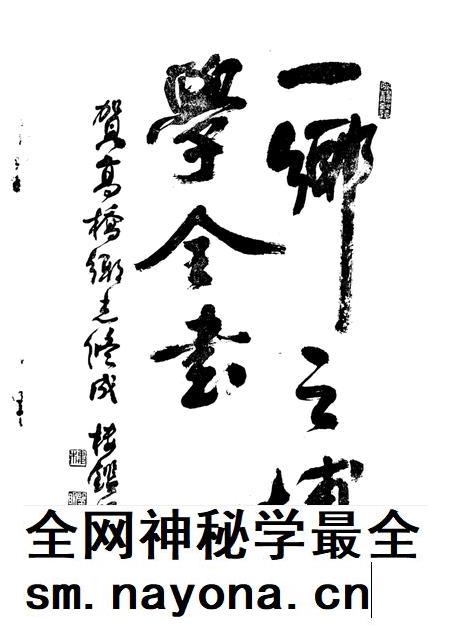 一鄉之博
學全書
賀高橋鄉志修成 楼鑑
全网神秘学最全
sm.nayona.cn